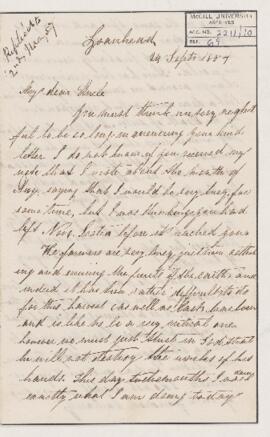 McGILL UNIVERSITY
ARCHIVES
ACC. NO. 2211/10
REF. 69
Replied to
2nd Nov., 57
24 Sept. 1857
My dear Uncle
You must think me very neglect
ful to be so long in answering your kind
letter. I do not know if you received my
note that I wrote about the month of
May, saying that I would be very busy for
some time, but I was thinking you had
left Nova Scotia before it reached you
The farmers are very busy just now gather
ing and securing the fruits of the earth, and
indeed it has been rather difficult to do
for this harvest as well as last, has been
and is like to be a very critical one
however we must just trust in God that
he will not destroy the works of his
hands. This day twelvemonths I was doing
exactly what I am doing to day